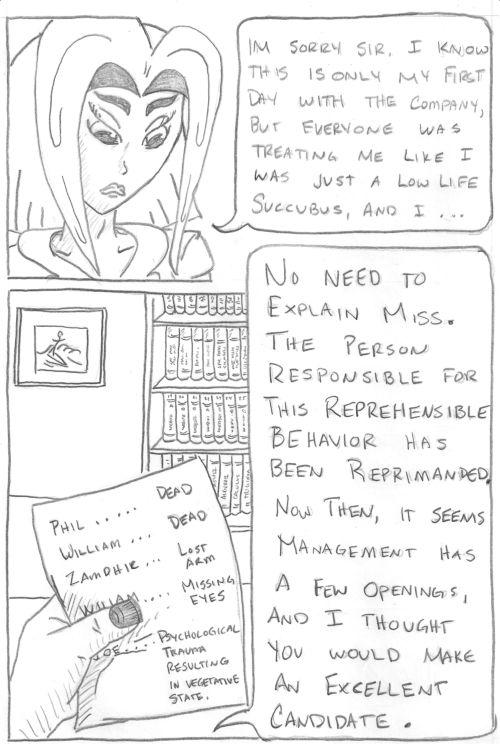 IM SORRY SIR, I KNOW
THIS IS ONLY MY FIRST
DAY WITH THE COMPANY,
BUT EVERYONE WAS
TREATING ME LIKE I
WAS JUST A LOW LIFE
SUCCUBUS, AND I ...
NO NEED TO
EXPLAIN MISS.
THE PERSON
RESPONSIBLE FOR
THIS REPREHENSIBLE
BEHAVIOR HAS
BEEN REPRIMANDED.
NOW THEN, IT SEEMS
MANAGEMENT HAS
A FEW OPENINGS,
AND I THOUGHT
YOU WOULD MAKE
AN EXCELLENT
CANDIDATE.
PHIL ..... DEAD
WILLIAM ... DEAD
ZAMDHIR ... LOST
ARM
WILIAM .... MISSING
EYES
JOE ... PSYCHOLOGICAL
TRAUMA
RESULTING
IN VEGETATIVE
STATE.